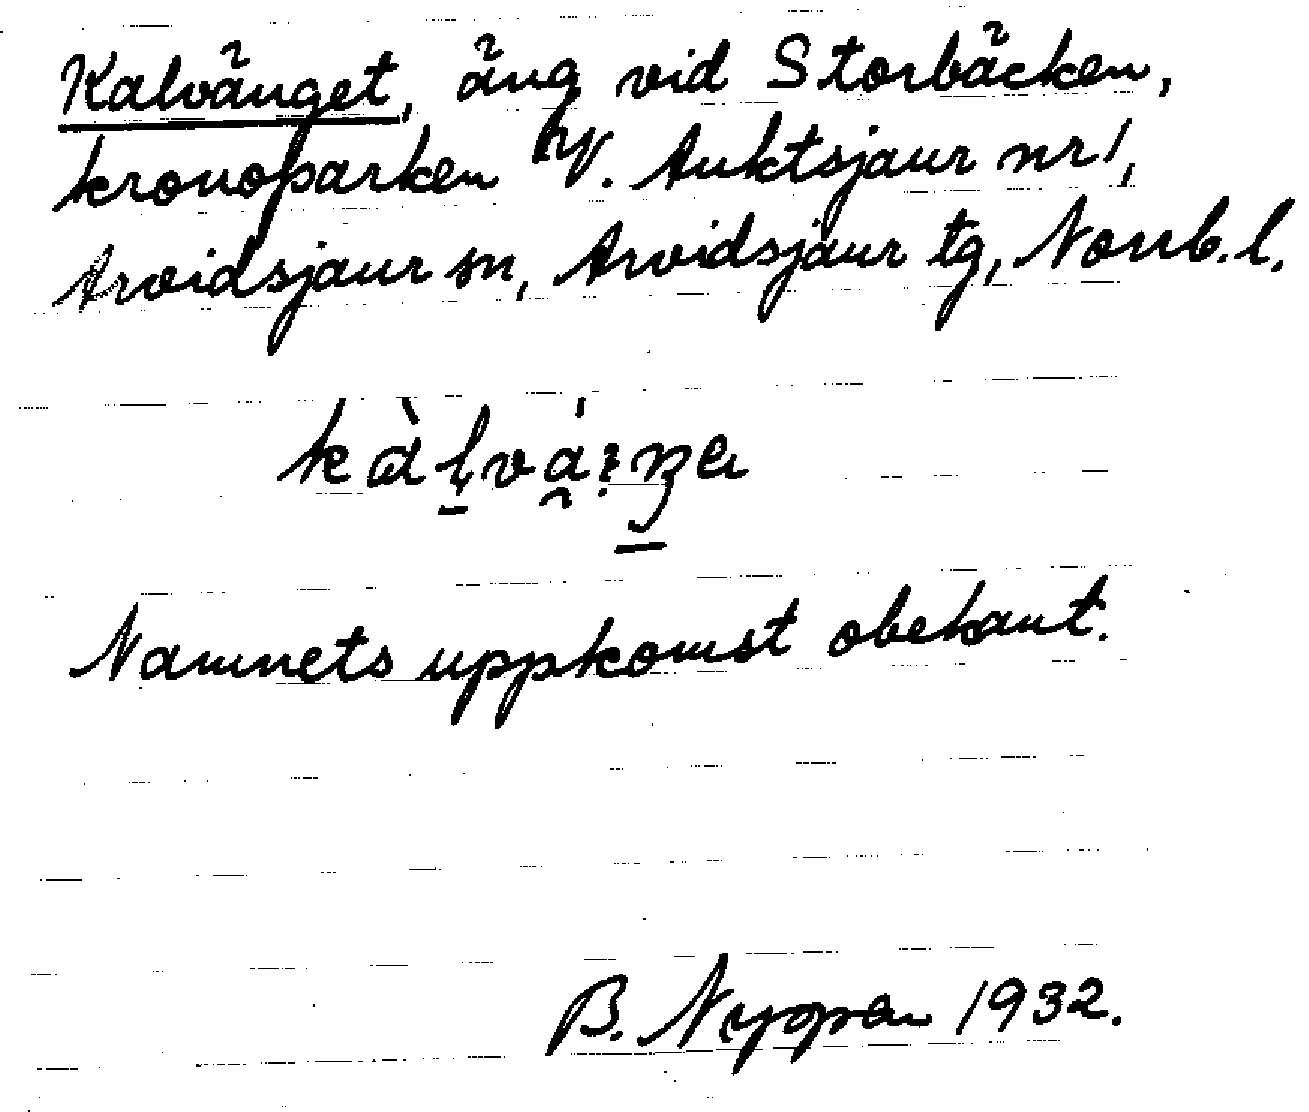 Kalvänget, äng vid Storbäcken,
kronoparken V. Auktsjaur nr 1,
Arvidsjaur sn, Arvidsjaur tg, Norrb. l.
Namnets uppkomst obekant.
B. Nyopan 1932.